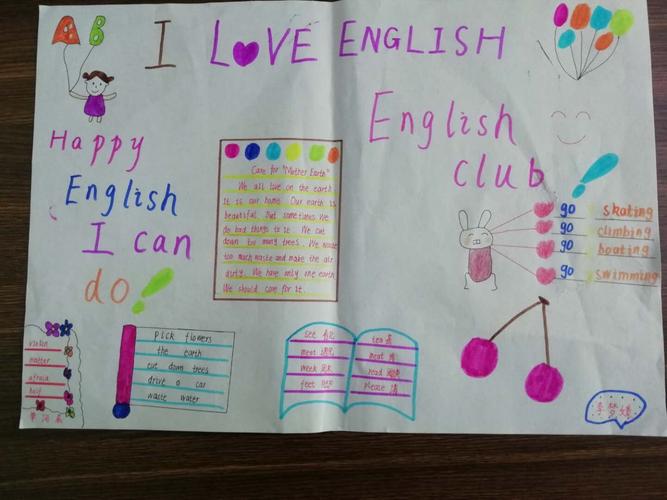 A B
I LOVE ENGLISH
Happy
English
I can
do!
English
club!
Care for "Mother Earth"
We all live on the earth
It is our home. Our earth is
beautiful. But sometimes We
do bad things to it. We cut
down too many trees. We waste
too much waste and make the air
dirty. We have only one earth
We should care for it.
go skating
go climbing
go boating
go swimming
matter
afraid
pick flowers
the earth
cut down trees
drive a car
waste water
see 看见
meet 遇见
week
feet
tea 茶
meat 肉
read
please 请